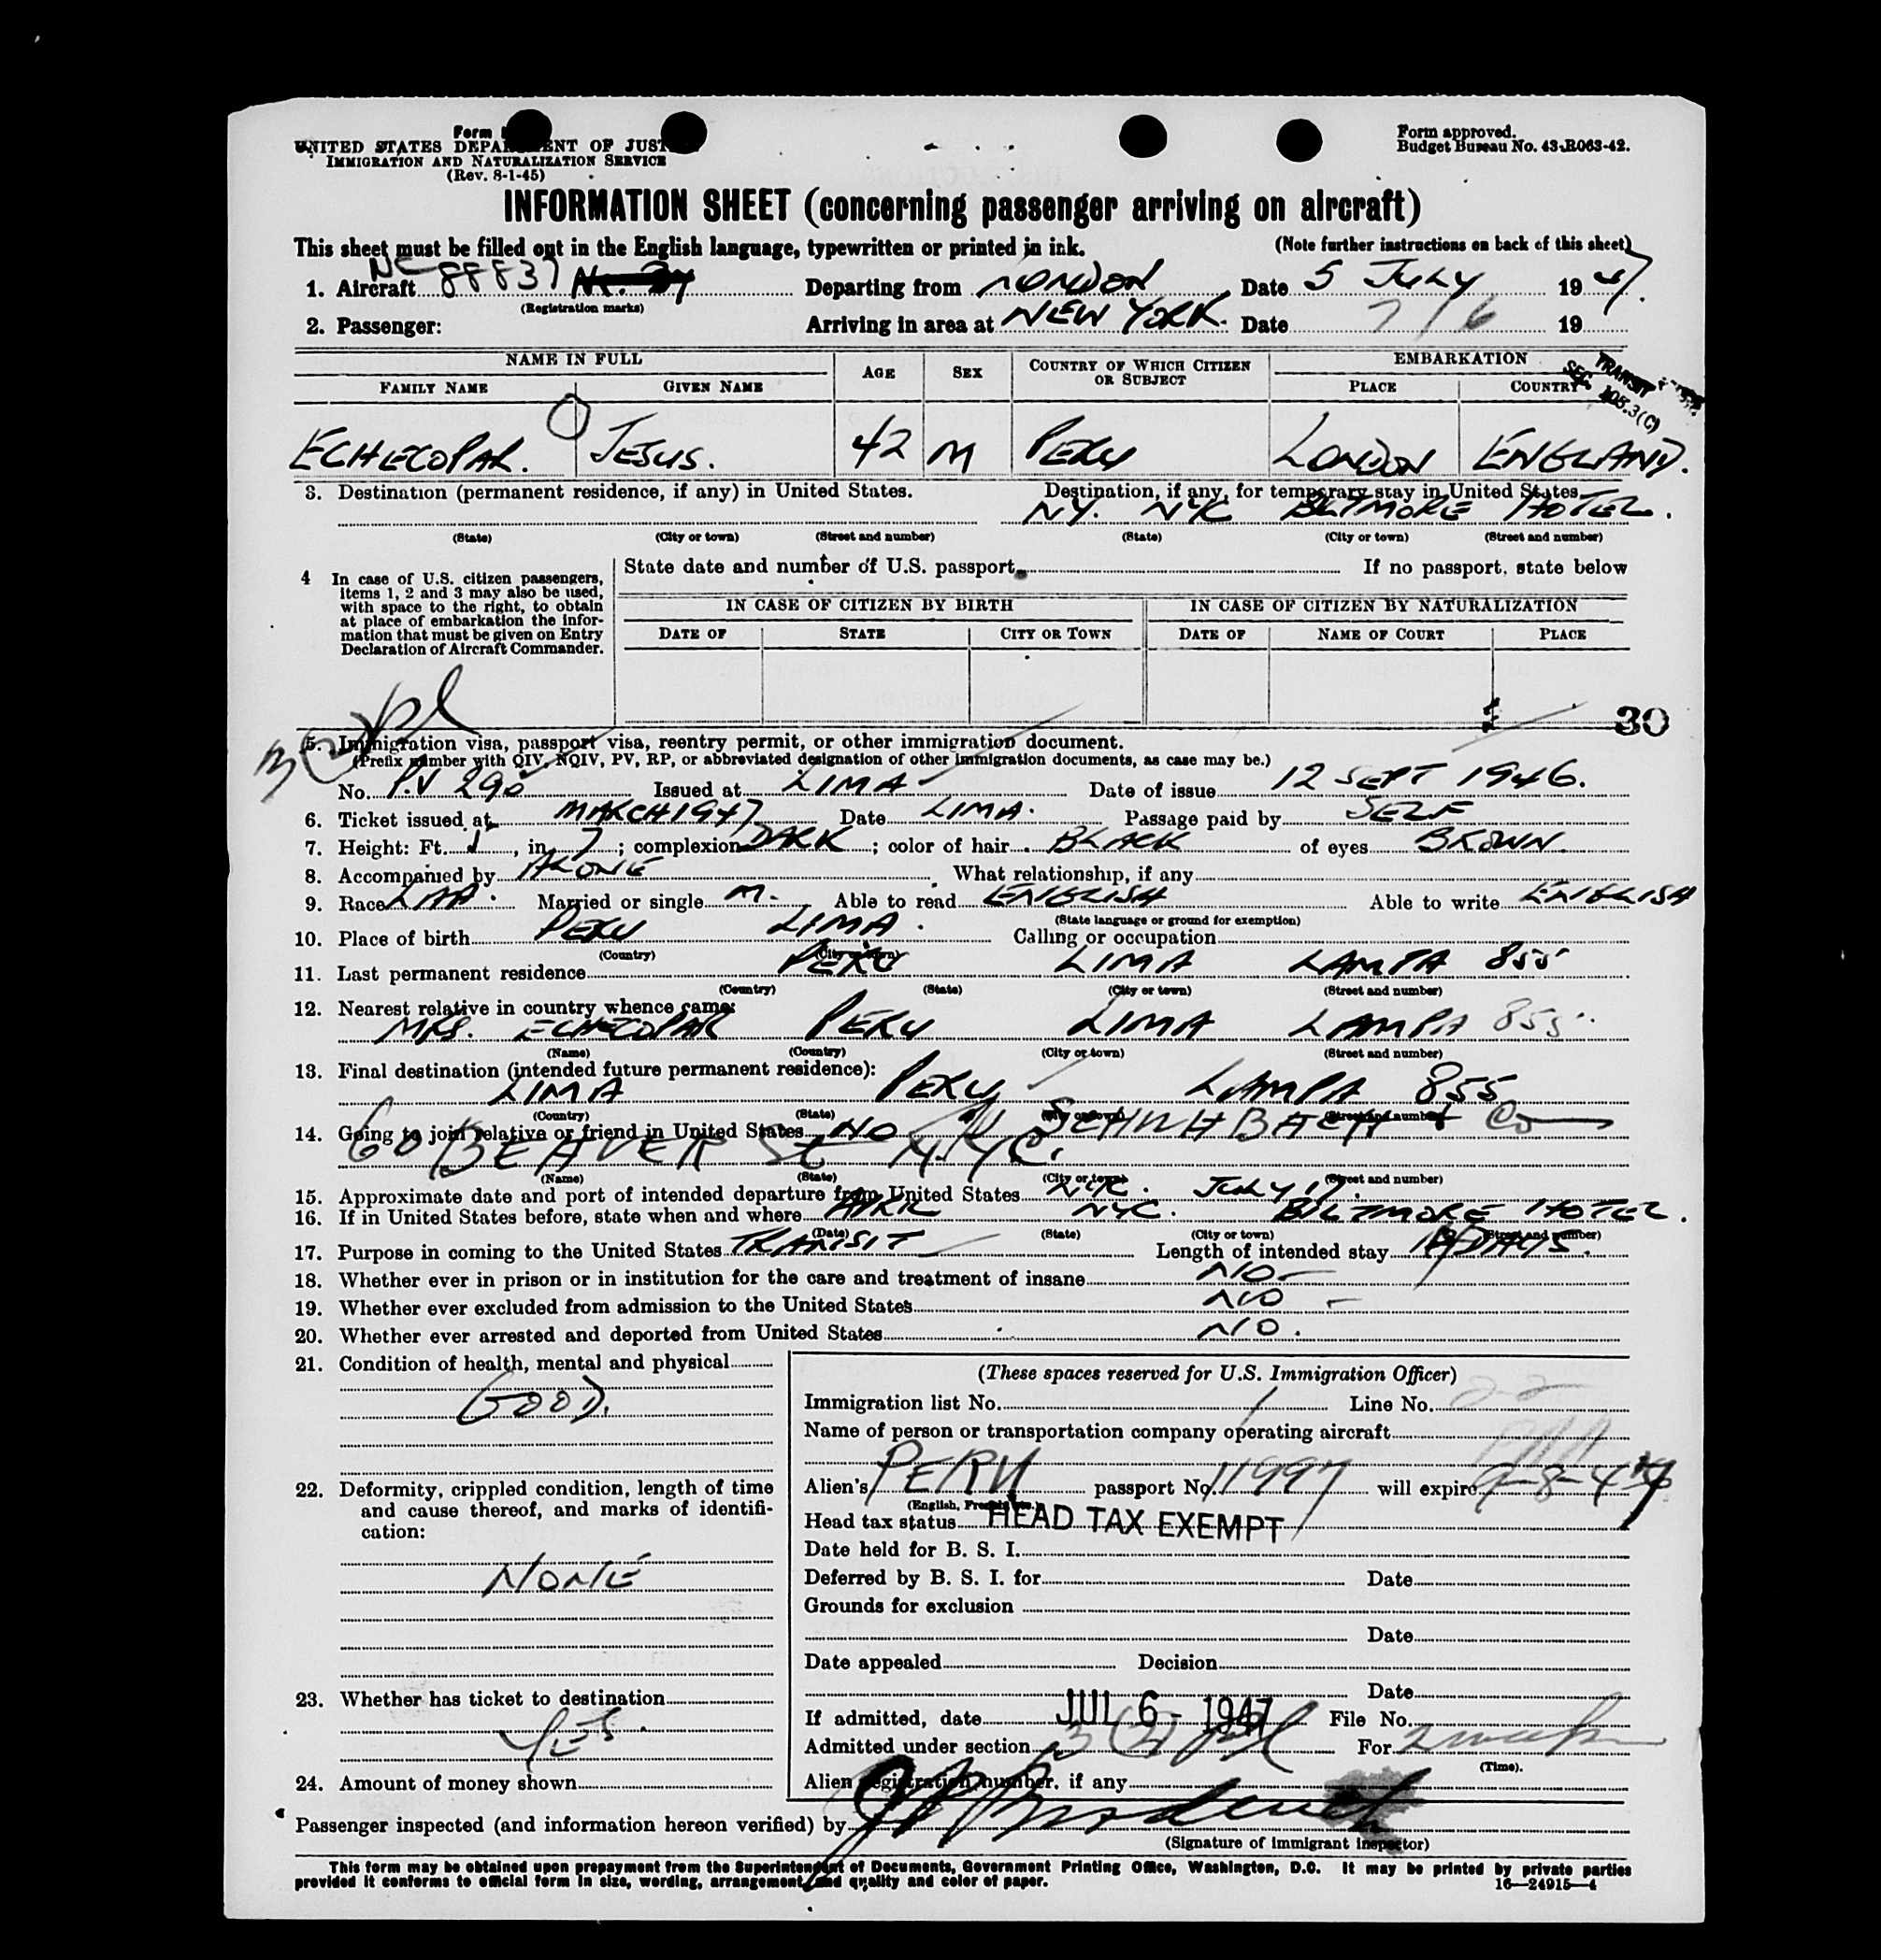 Form
UNITED STATES DEPARTMENT OF JUSTICE
IMMIGRATION AND NATURALIZATION SERVICE
(Rev. 8-1-45)
Form approved.
Budget Bureau No. 43-R063-42.
INFORMATION SHEET (concerning passenger arriving on aircraft)
This sheet must be filled out in the English language, typewritten or printed in ink. (Note further instructions on back of this sheet)
1. Aircraft NC 88837 Departing from LONDON Date 5 JULY 1947.
(Registration marks)
2. Passenger: Arriving in area at NEW YORK. Date 7/6 19
NAME IN FULL AGE SEX COUNTRY OF WHICH CITIZEN OR SUBJECT EMBARKATION
FAMILY NAME GIVEN NAME PLACE COUNTRY
TRANSIT
SEC. 105.3(C)
ECHECOPAR. JESUS. 42 M PERU LONDON ENGLAND.
3. Destination (permanent residence, if any) in United States. Destination, if any, for temporary stay in United States
NY. NYC BILTMORE HOTEL.
(State) (City or town) (Street and number) (State) (City or town) (Street and number)
4 In case of U.S. citizen passengers, items 1, 2 and 3 may also be used, with space to the right, to obtain at place of embarkation the information that must be given on Entry Declaration of Aircraft Commander.
State date and number of U.S. passport If no passport, state below
IN CASE OF CITIZEN BY BIRTH IN CASE OF CITIZEN BY NATURALIZATION
DATE OF STATE CITY OR TOWN DATE OF NAME OF COURT PLACE
30
3(2)
5. Immigration visa, passport visa, reentry permit, or other immigration document.
(Prefix number with QIV, NQIV, PV, RP, or abbreviated designation of other immigration documents, as case may be.)
No. P.V 290 Issued at LIMA Date of issue 12 SEPT 1946.
6. Ticket issued at MARCH 1947 Date LIMA. Passage paid by SELF
7. Height: Ft. 5, in. 7; complexion DARK; color of hair BLACK of eyes BROWN.
8. Accompanied by ALONE What relationship, if any
9. Race Married or single M. Able to read ENGLISH Able to write ENGLISH
(State language or ground for exemption)
10. Place of birth PERU LIMA. Calling or occupation
(Country) (City or town)
11. Last permanent residence PERU LIMA LAMPA 855
(Country) (State) (City or town) (Street and number)
12. Nearest relative in country whence came:
MRS. ECHECOPAR PERU LIMA LAMPA 855.
(Name) (Country) (City or town) (Street and number)
13. Final destination (intended future permanent residence):
LIMA PERU LAMPA 855
(Country) (State) (City or town) (Street and number)
14. Going to join relative or friend in United States NO & Co
60 BEAVER St N.Y.C.
(Name) (State) (City or town) (Street and number)
15. Approximate date and port of intended departure from United States JULY 17.
16. If in United States before, state when and where NYC. BILTMORE HOTEL.
(Date) (State) (City or town) (Street and number)
17. Purpose in coming to the United States TRANSIT Length of intended stay DAYS.
18. Whether ever in prison or in institution for the care and treatment of insane NO
19. Whether ever excluded from admission to the United States NO
20. Whether ever arrested and deported from United States NO.
21. Condition of health, mental and physical
GOOD.
22. Deformity, crippled condition, length of time and cause thereof, and marks of identification:
NONE
23. Whether has ticket to destination
YES.
24. Amount of money shown
(These spaces reserved for U.S. Immigration Officer)
Immigration list No. 1 Line No. 22
Name of person or transportation company operating aircraft
Alien's PERU passport No. 11997 will expire
(English, French, etc.)
Head tax status HEAD TAX EXEMPT
Date held for B. S. I.
Deferred by B. S. I. for Date
Grounds for exclusion
Date
Date appealed Decision
Date
If admitted, date JUL 6 - 1947 File No.
Admitted under section 3(2) For 2 weeks
(Time).
Alien registration number, if any
Passenger inspected (and information hereon verified) by
(Signature of immigrant inspector)
This form may be obtained upon prepayment from the Superintendent of Documents, Government Printing Office, Washington, D.C. It may be printed by private parties
provided it conforms to official form in size, wording, arrangement, and quality and color of paper. 16—24915—4